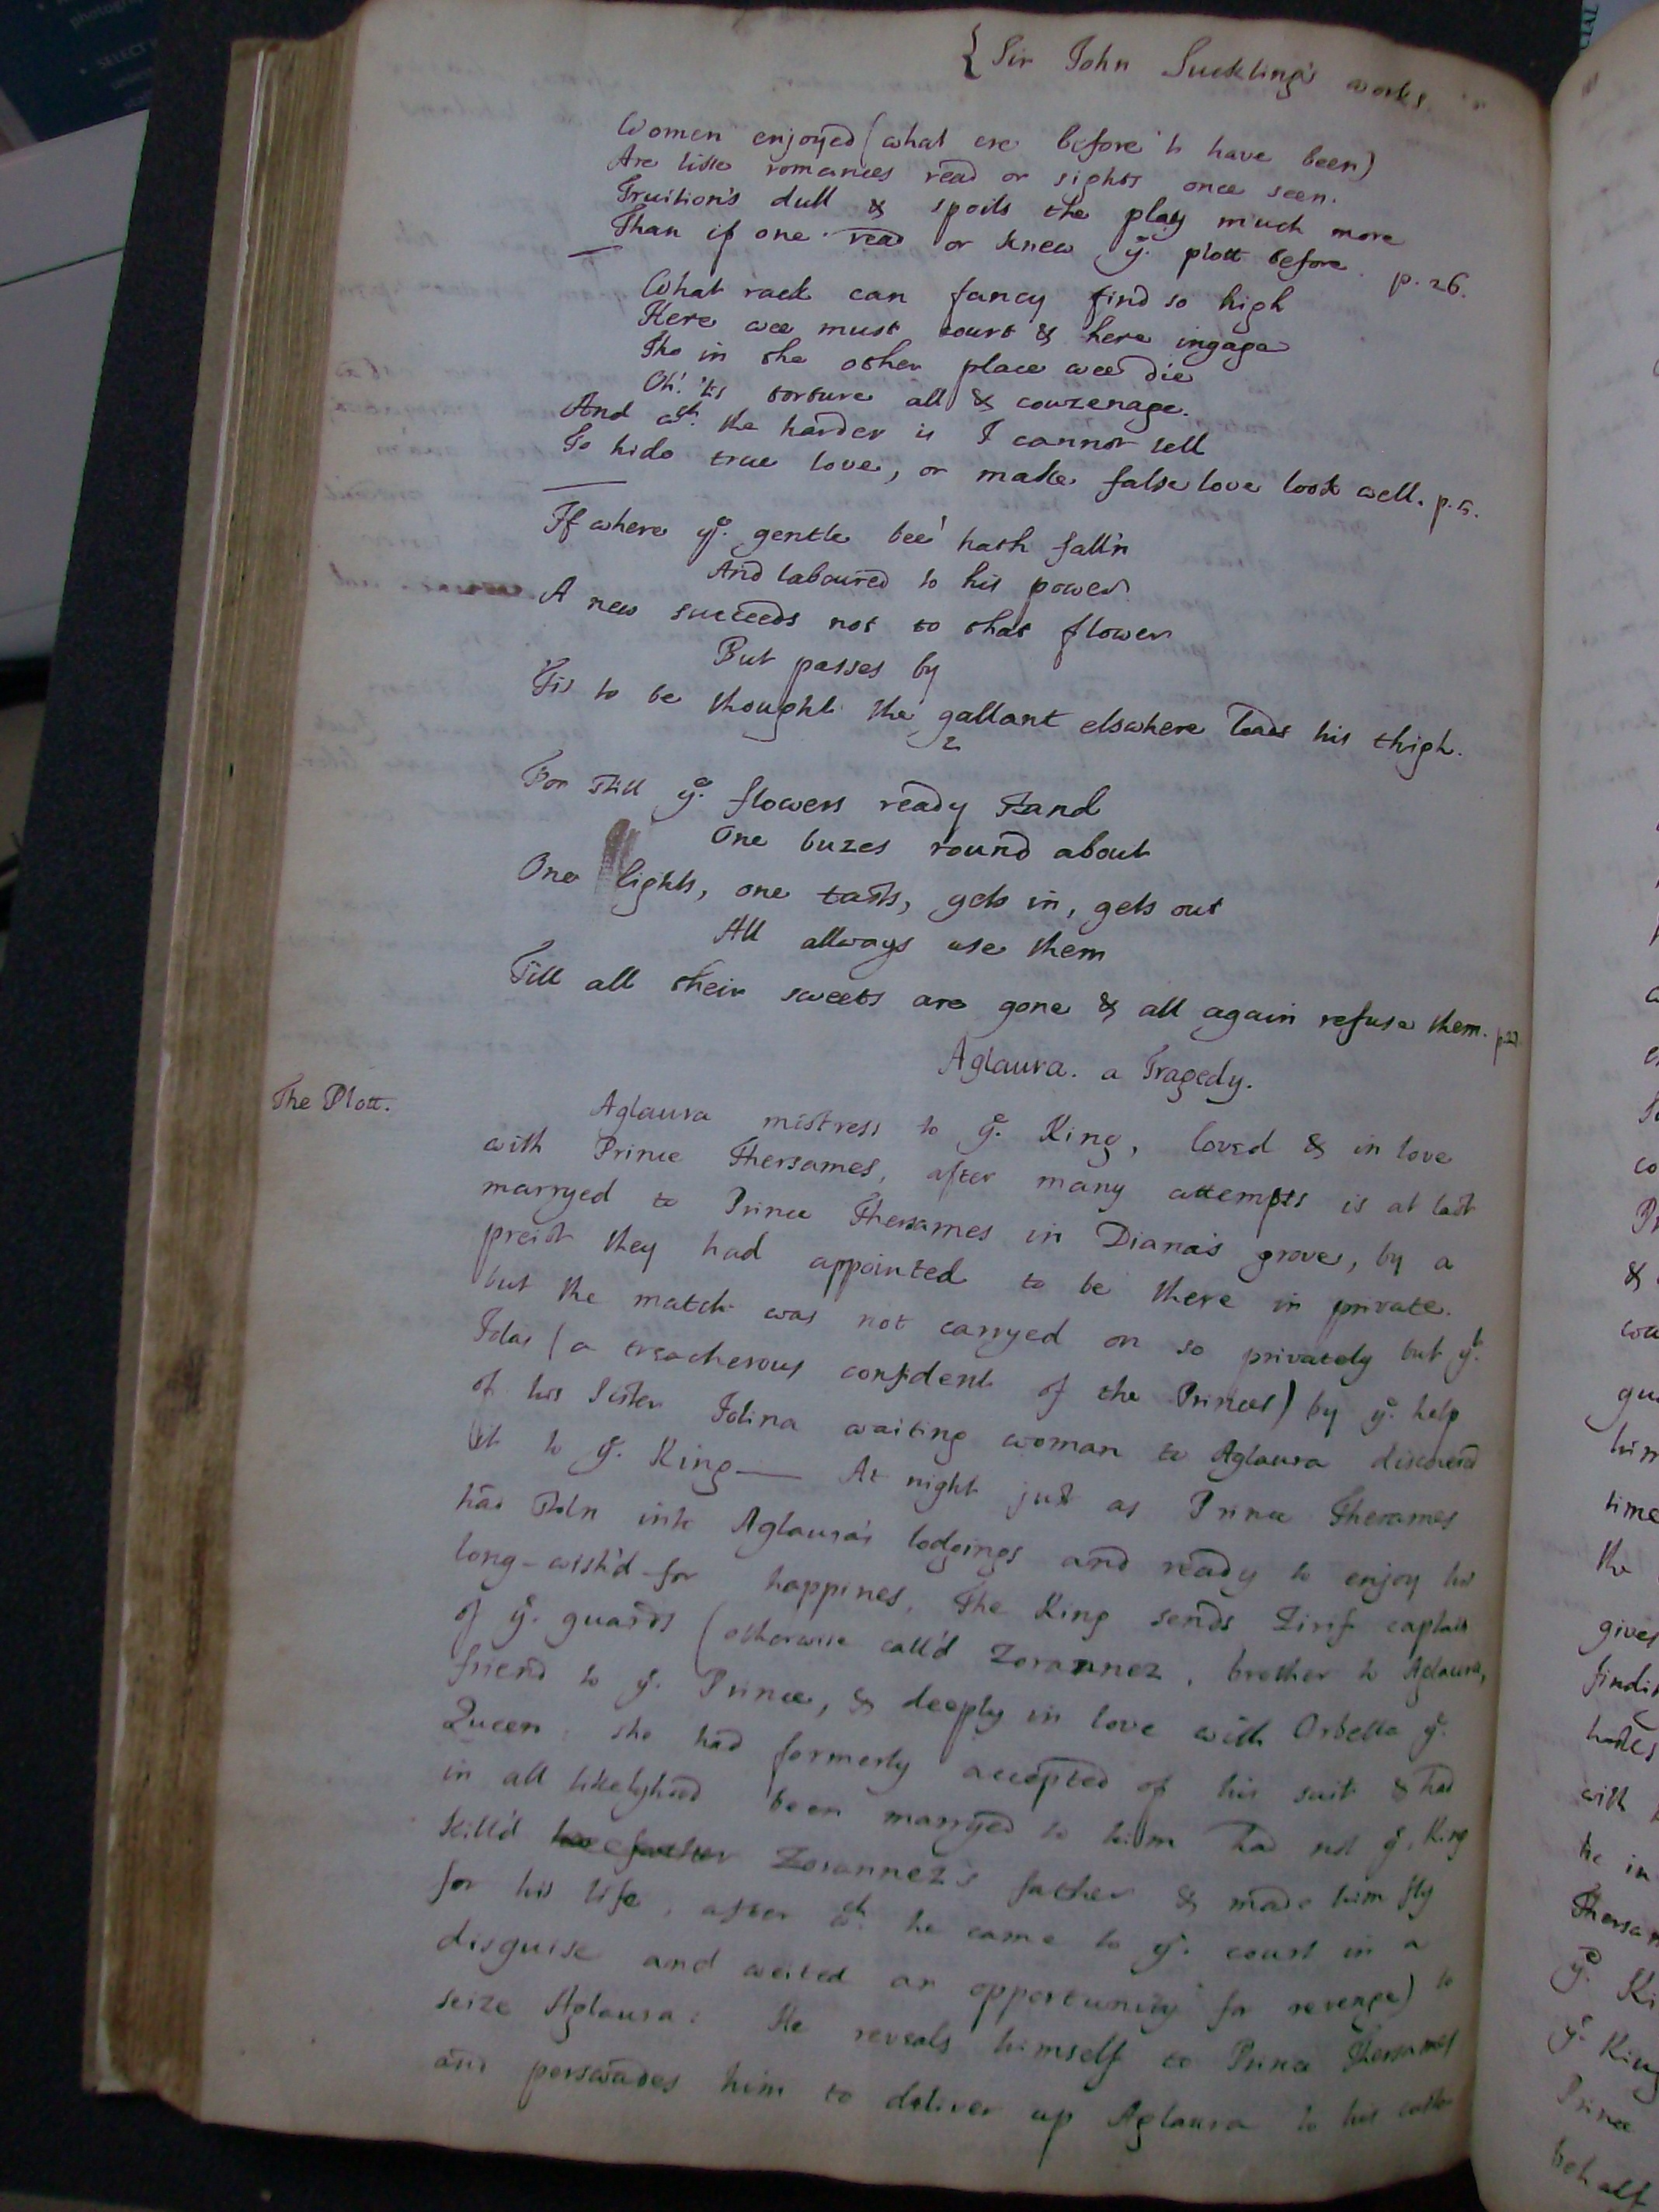 { Sir John Suckling's works
Women enjoyed (what ere before 't have been)
Are like romances read or sights once seen.
Fruition's dull & spoils the play much more
Than if one read or knew yᵉ. plott before. p. 26.
What rack can fancy find so high
Here wee must court & here ingage
Tho in the other place wee die
Oh! 'tis torture all & cowzenage.
And wᶜʰ. the harder is I cannot tell
To hide true love, or make false love look well. p. 5.
If where yᵉ. gentle bee hath fall'n
And laboured to his power
A new succeeds not to that flower
But passes by
Tis to be thought the gallant elswhere loads his thigh.
2
For still yᵉ. flowers ready stand
One buzes round about
One lights, one tasts, gets in, gets out
All allways use them
Till all their sweets are gone & all again refuse them.
Aglaura. a Tragedy.
The Plott.
Aglaura mistress to yᵉ. King, loved & in love
with Prince Thersames, after many attempts is at last
marryed to Prince Thersames in Diana's grove, by a
preist they had appointed to be there in private.
but the match was not carryed on so privately but yᵗ.
Iolas (a treacherous confident of the Princes) by yᵉ. help
of his Sister Iolina waiting woman to Aglaura discovered
it to yᵉ. King — At night just as Prince Thersames
had stoln into Aglaura's lodgings and ready to enjoy his
long-wish'd-for happines, The King sends Zirif captain
of yᵉ. guards (otherwise call'd Zorannez, brother to Aglaura,
friend to yᵉ. Prince, & deeply in love with Orbella yᵉ.
Queen: she had formerly accepted of his suit & had
in all likelyhood been marryed to him had not yᵉ. King
kill'd her father Zorannez's father & made him fly
for his life, after wᶜʰ. he came to yᵉ. court in a
disguise and waited an opportunity for revenge) to
seize Aglaura: He reveals himself to Prince Thersames
and perswades him to deliver up Aglaura to his